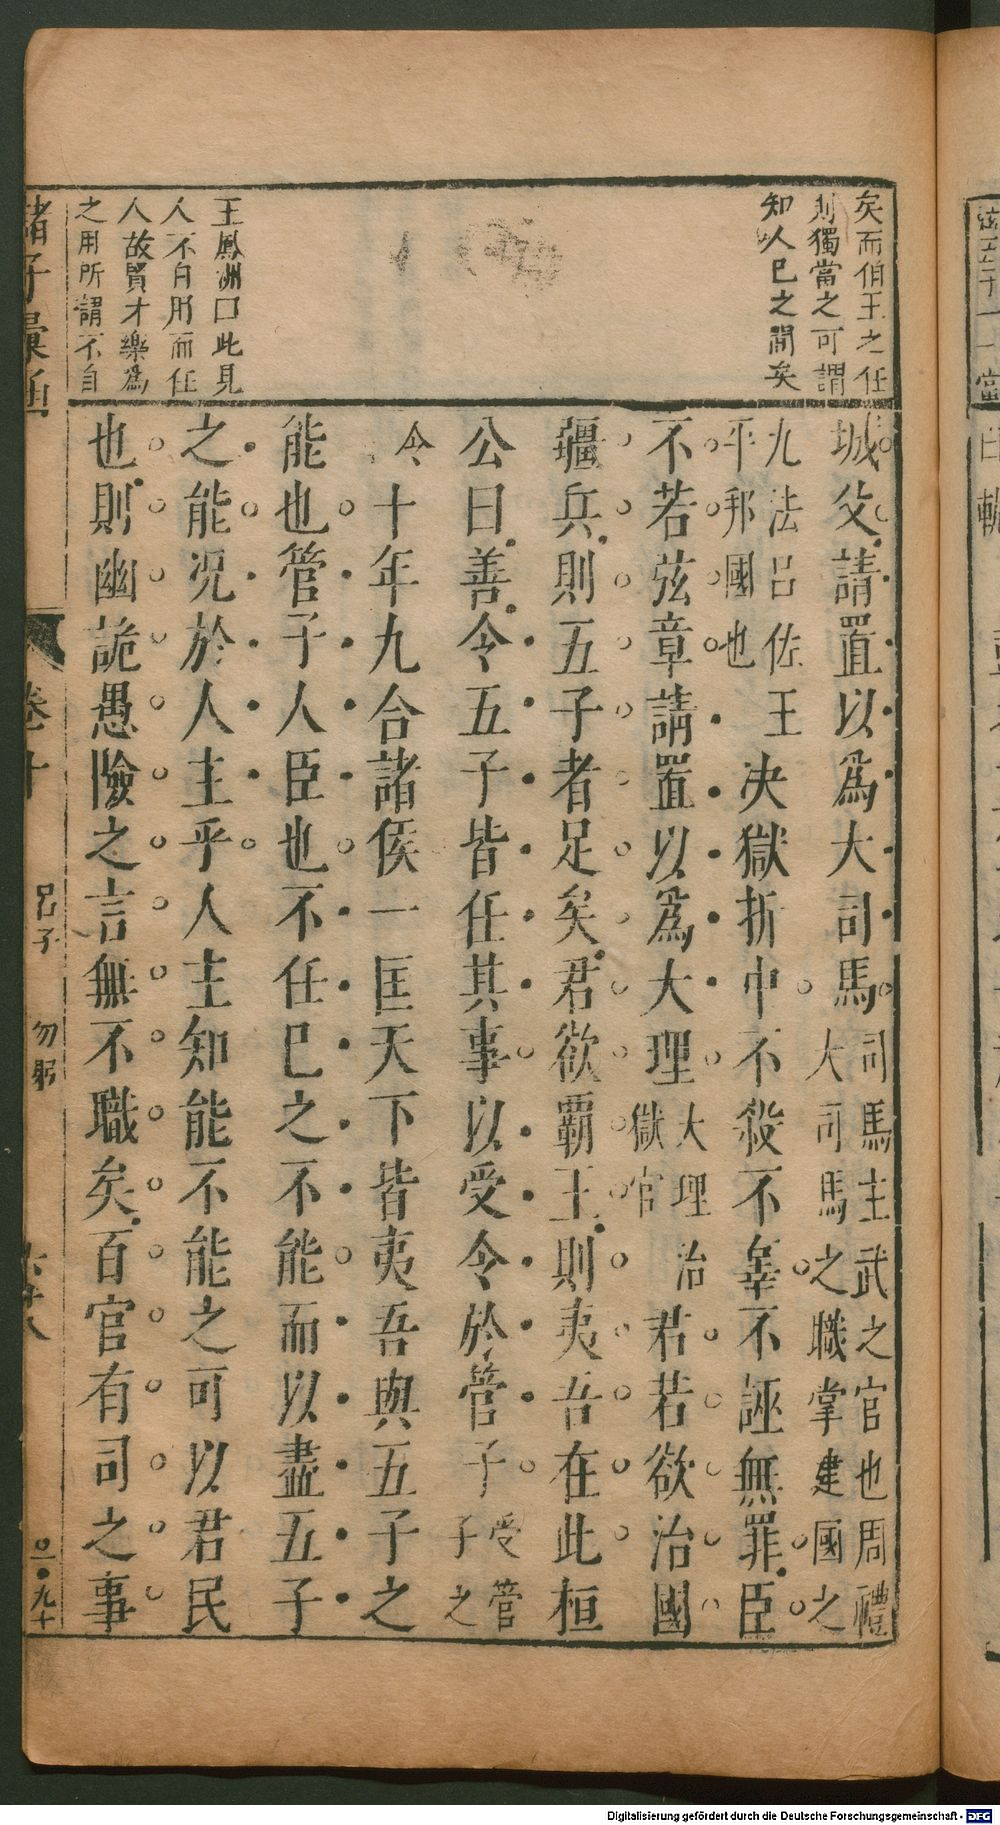 矣而伯王之任
則獨當之可謂
知人巳之間矣
王鳳洲曰此見
人不自用而任
人故賢才樂爲
之用所謂不自
城父請置以爲大司馬
司馬主武之官也周禮
大司馬之職掌建國之
九法呂佐王
平邦國也
決獄折中不殺不辜不誣無罪臣
不若弦章請置以爲大理
大理治
獄官
君若欲治國
疆兵則五子者足矣君欲覇王則夷吾在此桓
公曰善令五子皆任其事以受令於管子
受管
子之
令
十年九合諸侯一匡天下皆夷吾與五子之
能也管子人臣也不任巳之不能而以盡五子
之能况於人主乎人主知能不能之可以君民
也則幽詭愚險之言無不職矣百官有司之事
諸子彙函
卷十
呂子
勿躬
六十八
Digitalisierung gefördert durch die Deutsche Forschungsgemeinschaft - DFG